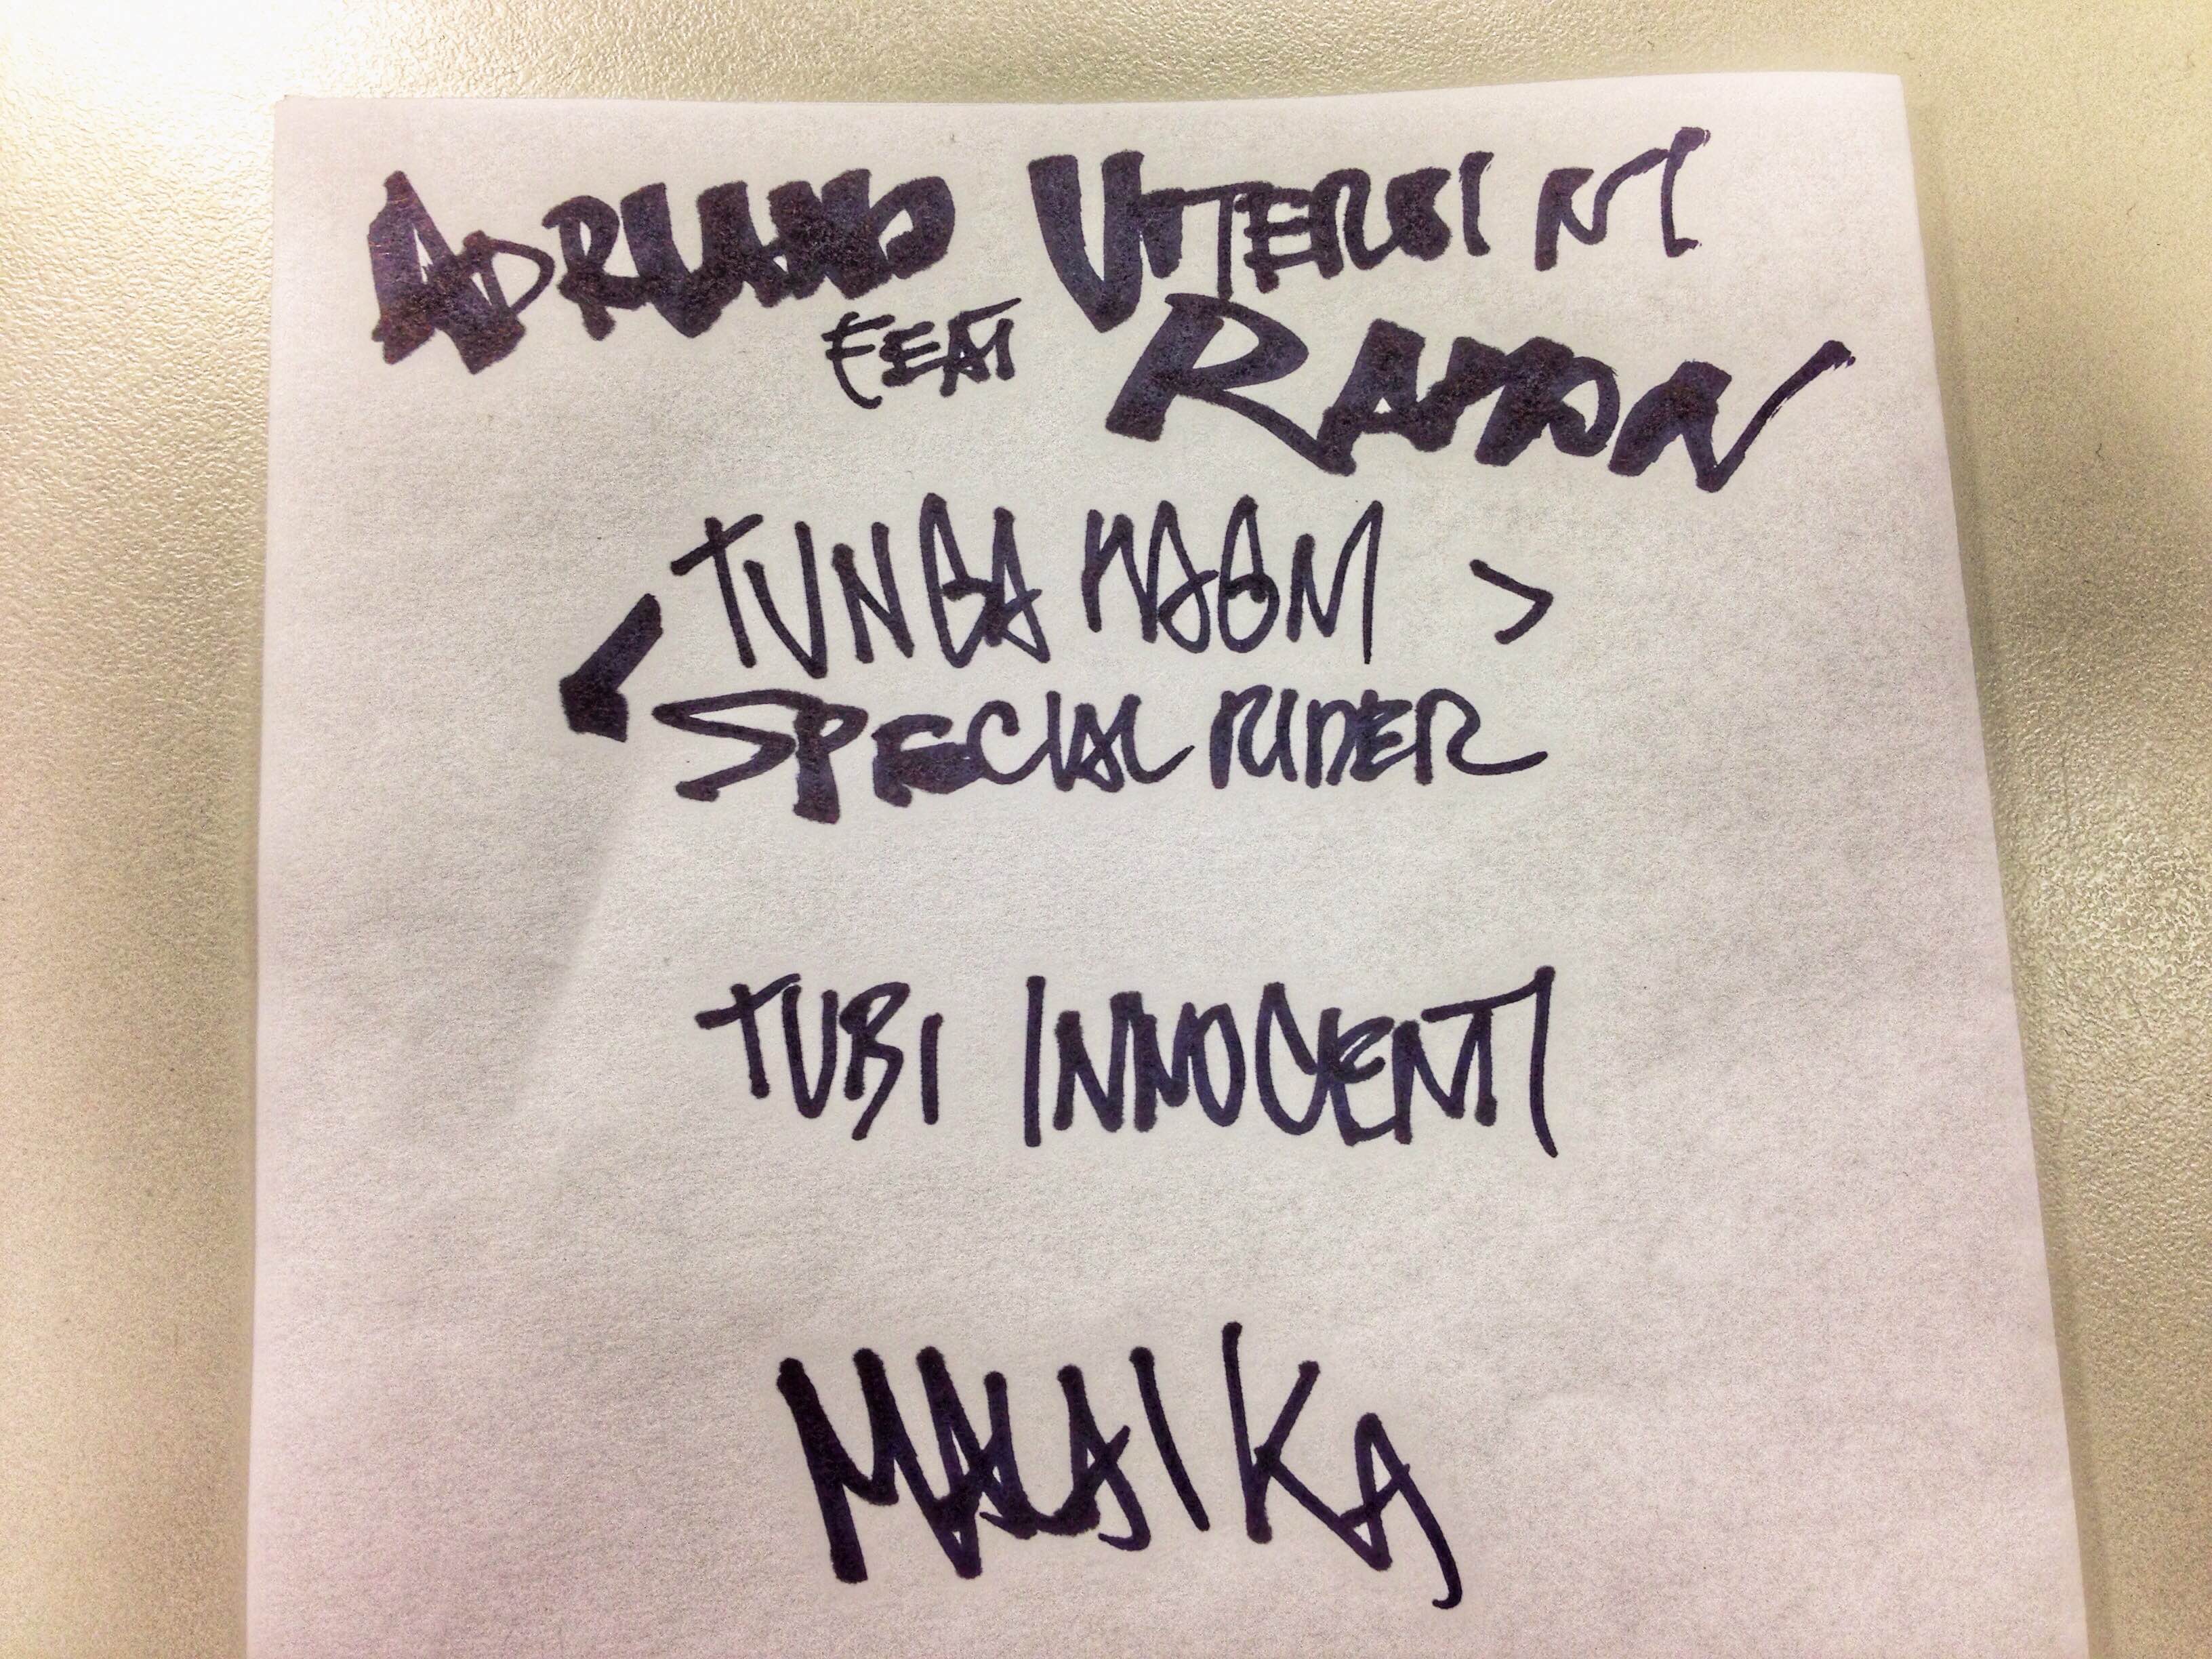 ADRIANO VITERBINI
FEAT RAMON
TUNGA MAGNI >
SPECIAL RIDER
TUBI INNOCENTI
MALAIKA